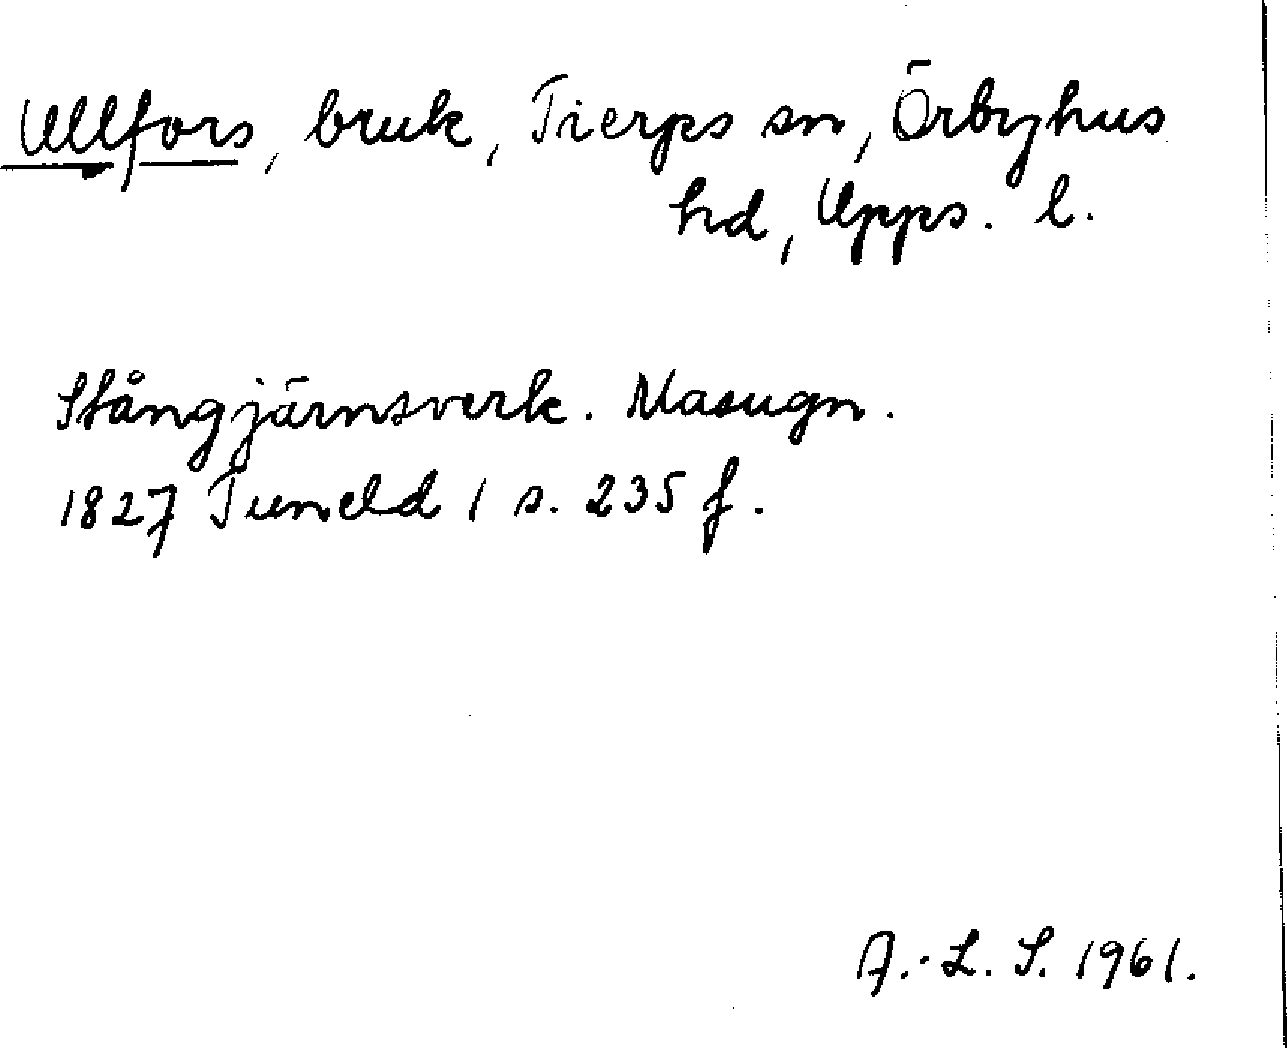 Ullfors, bruk, Tierps sn, Örbyhus
hd, Upps. l.
Stångjärnsverk. Masugn.
1827 Tuneld 1 s. 235 f.
A.-L. S. 1961.